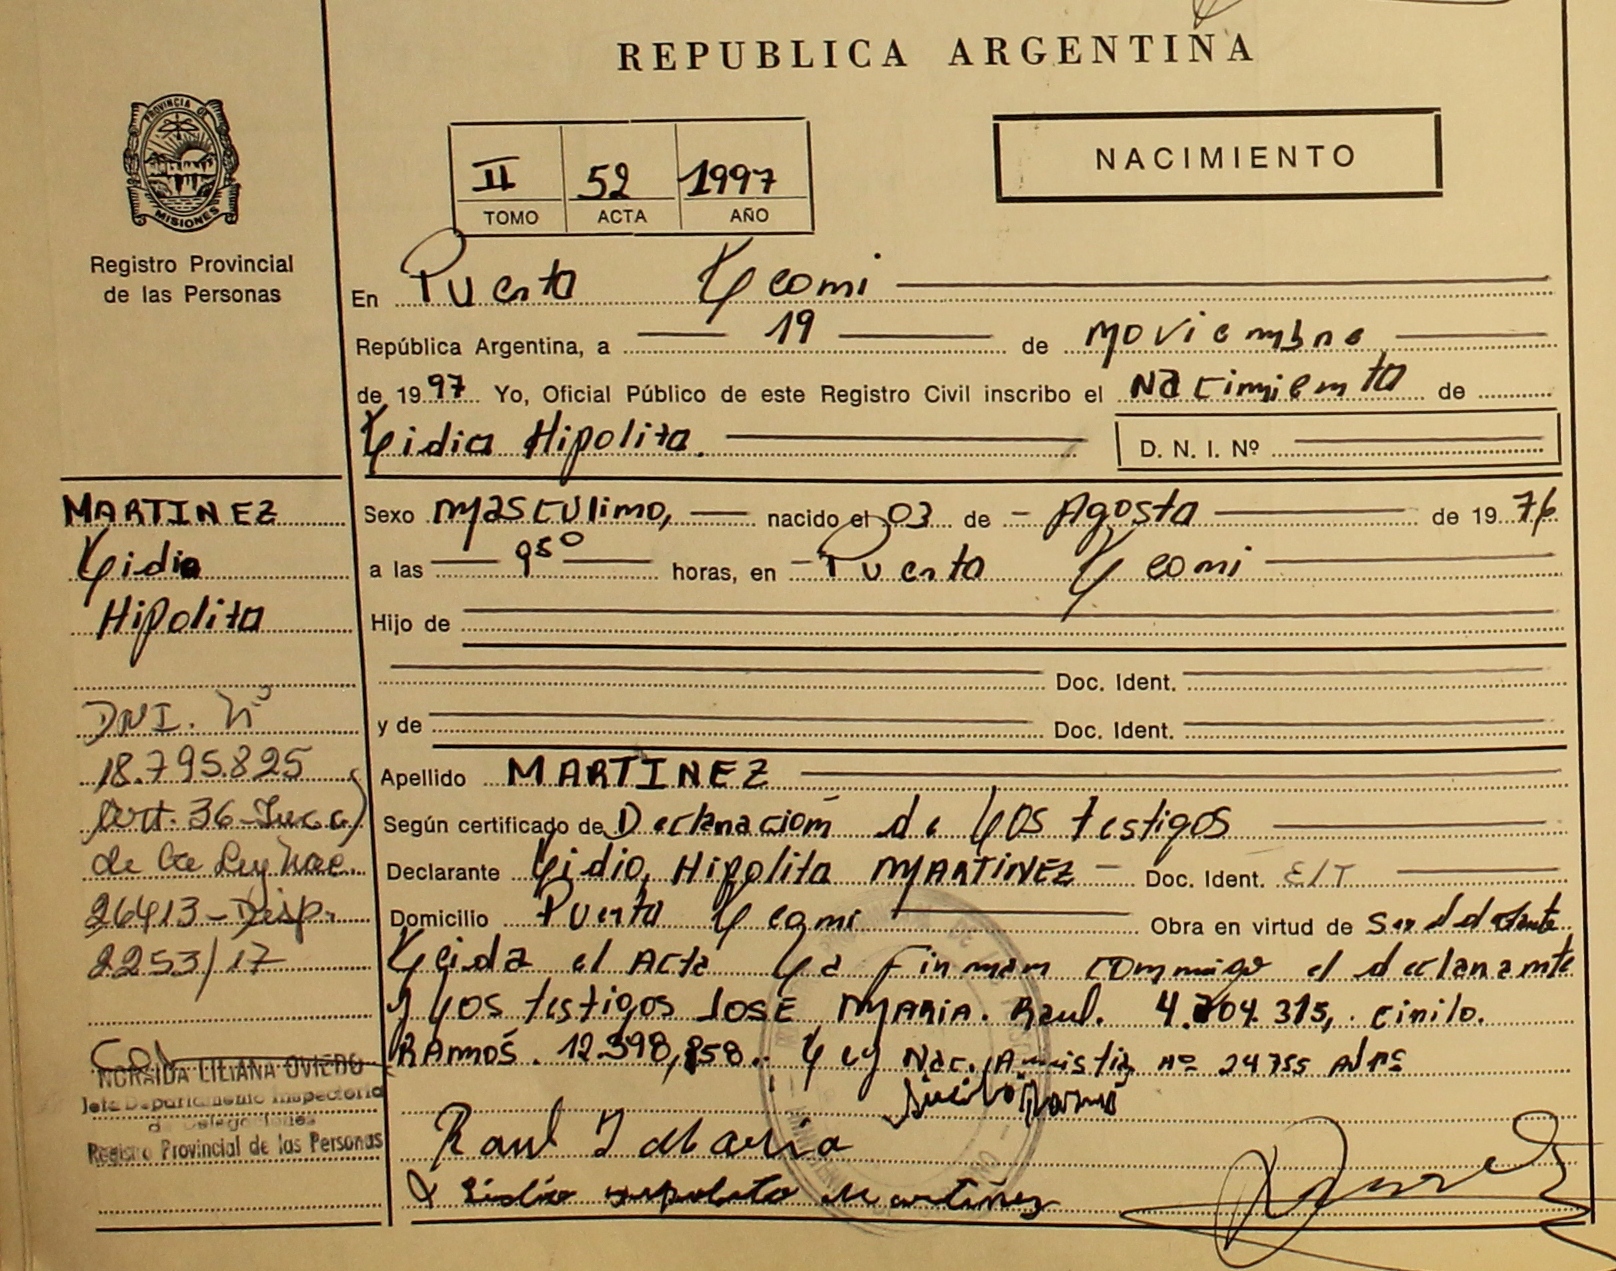 REPUBLICA ARGENTINA
PROVINCIA DE
MISIONES
Registro Provincial
de las Personas
NACIMIENTO
II 52 1997
TOMO ACTA AÑO
En Puerto Leoni
República Argentina, a 19 de Noviembre
de 1997 Yo, Oficial Público de este Registro Civil inscribo el Nacimiento de
Lidio Hipolito. D. N. I. Nº
Sexo masculino, nacido el 03 de Agosto de 1976
a las 9 50 horas, en Puerto Leoni
Hijo de
Doc. Ident.
y de Doc. Ident.
Apellido MARTINEZ
Según certificado de Declaración de los testigos
Declarante Lidio, Hipolito MARTINEZ Doc. Ident. E/T
Domicilio Puerto Leoni Obra en virtud de Ser declarante
Leida el Acta La firman conmigo el declarante
y Los testigos JOSE MARIA. Raul. 4.204.315, Cirilo.
RAMOS. 12.398,858. Ley Nac. Amnistia nº 24755
Cirilo Ramos
Raul J Maria
Lidio Hipolito Martinez
MARTINEZ
Lidio
Hipolito
DNI. Nº
18.795.825
Art. 36
de la Ley Nac.
26413 - Disp.
2253/17
NORAIDA LILIANA OVIEDO
Jefa Departamento Inspectoria
de Delegaciones
Registro Provincial de las Personas